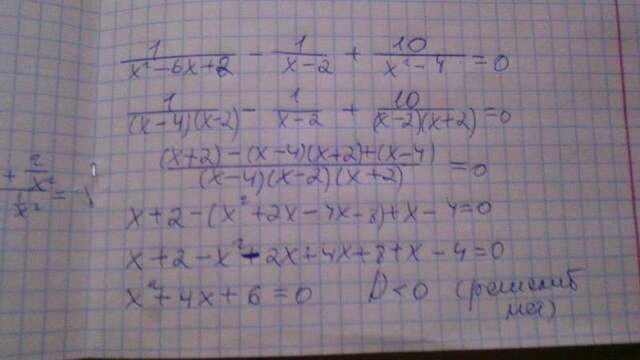 1/(x²-6x+8) - 1/(x-2) + 10/(x²-4) = 0
1/((x-4)(x-2)) - 1/(x-2) + 10/((x-2)(x+2)) = 0
((x+2)-(x-4)(x+2)+(x-4))/((x-4)(x-2)(x+2)) = 0
x+2-(x²+2x-4x-8)+x-4=0
x+2-x²-2x+4x+8+x-4=0
x²+4x+6=0 D<0 (решений
нет)